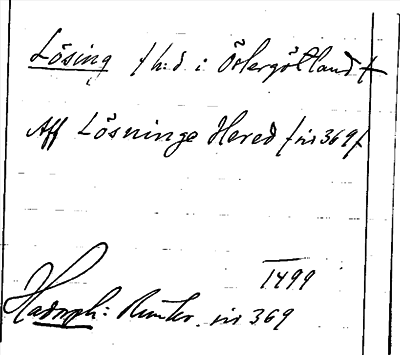 Lösing /h:d i Östergötland/
Aff Lösninge Hered /nr 369/
1499
Hadorph: Runkr. nr 369